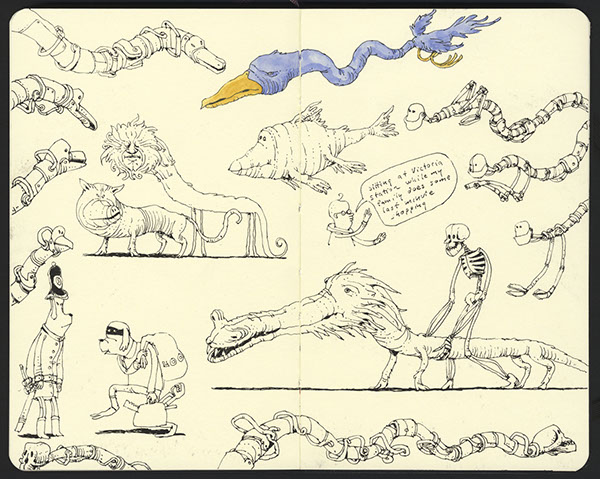 sitting at Victoria
station while my
family does some
last minute
shopping